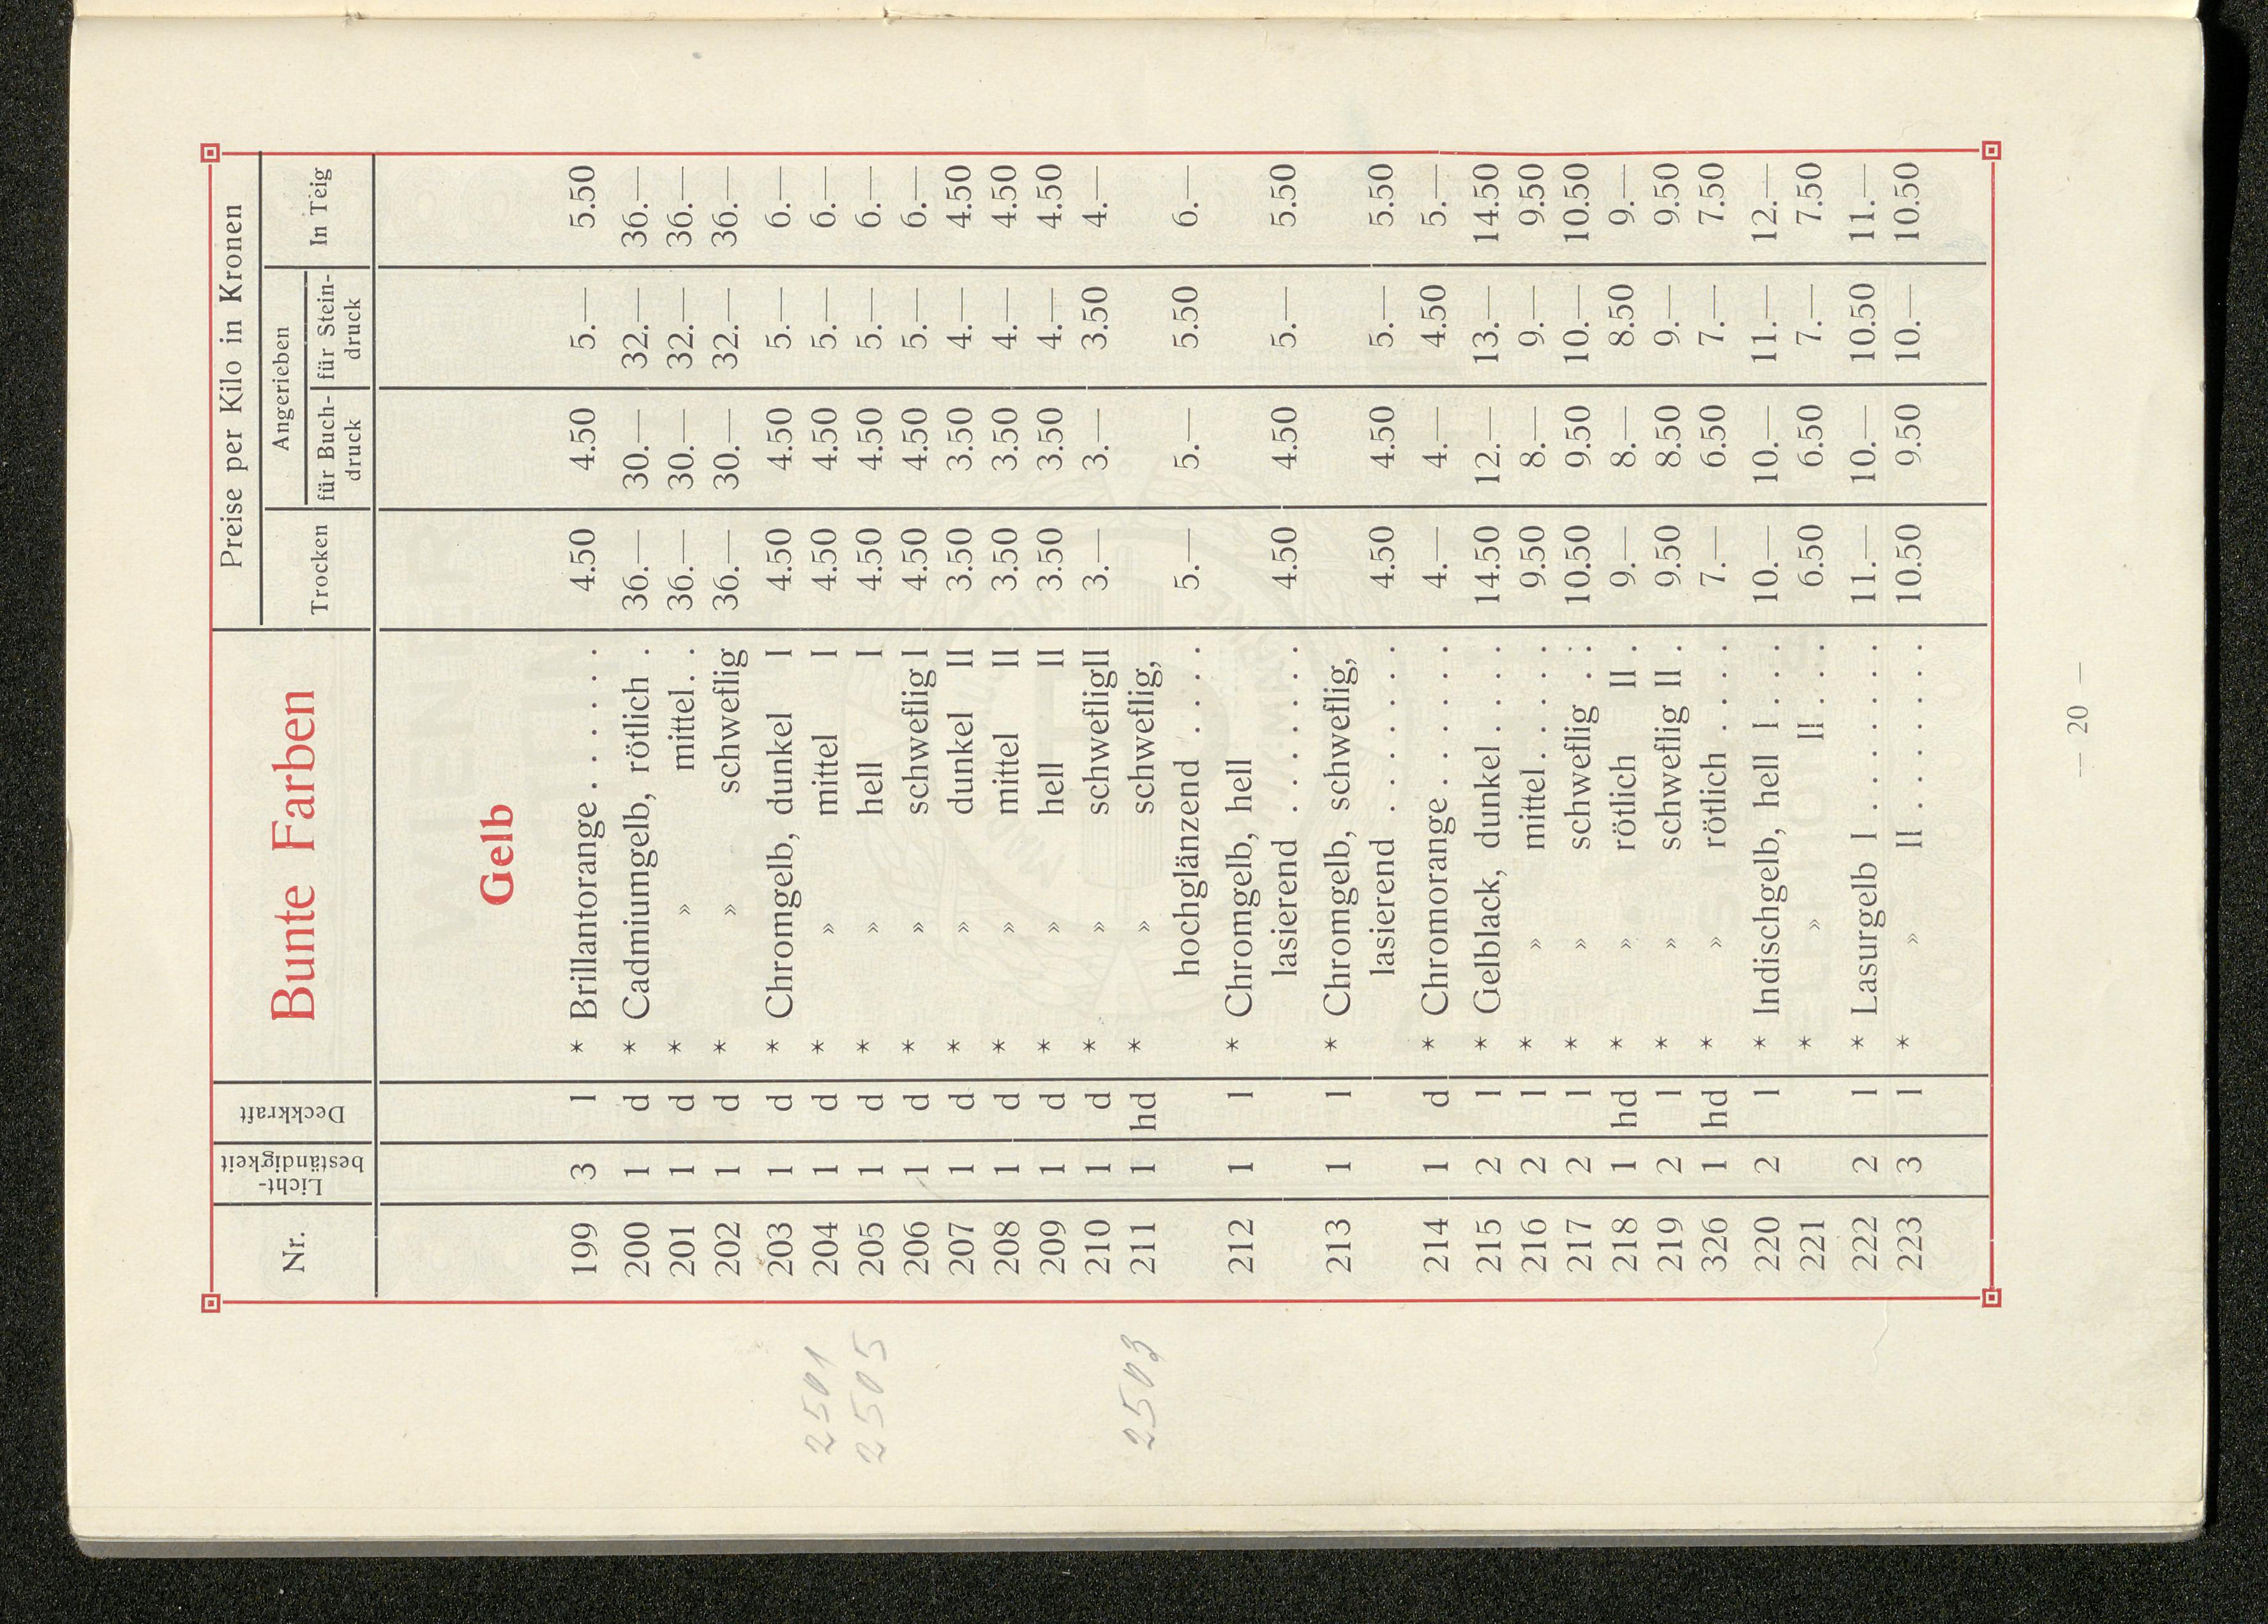 Nr. Licht- Deckkraft Bunte Farben Preise per Kilo in Kronen
beständigkeit Trocken Angerieben In Teig
für Buch- für Stein-
druck druck
Gelb
199 3 l * Brillantorange . . . . . . 4.50 4.50 5.— 5.50
200 1 d * Cadmiumgelb, rötlich . 36.— 30.— 32.— 36.—
201 1 d * » mittel . . 36.— 30.— 32.— 36.—
202 1 d * » schweflig 36.— 30.— 32.— 36.—
203 1 d * Chromgelb, dunkel I 4.50 4.50 5.— 6.—
204 1 d * » mittel I 4.50 4.50 5.— 6.—
2501
205 1 d * » hell I 4.50 4.50 5.— 6.—
2505
206 1 d * » schweflig I 4.50 4.50 5.— 6.—
207 1 d * » dunkel II 3.50 3.50 4.— 4.50
208 1 d * » mittel II 3.50 3.50 4.— 4.50
209 1 d * » hell II 3.50 3.50 4.— 4.50
210 1 d * » schweflig II 3.— 3.— 3.50 4.—
211 1 hd * » schweflig,
2503
hochglänzend . . . . 5.— 5.— 5.50 6.—
212 1 l * Chromgelb, hell
lasierend . . . . . . . 4.50 4.50 5.— 5.50
213 1 l * Chromgelb, schweflig,
lasierend . . . . . . . 4.50 4.50 5.— 5.50
214 1 d * Chromorange . . . . . . 4.— 4.— 4.50 5.—
215 2 l * Gelblack, dunkel . . . . 14.50 12.— 13.— 14.50
216 2 l * » mittel . . . . . 9.50 8.— 9.— 9.50
217 2 l * » schweflig . . 10.50 9.50 10.— 10.50
218 1 hd * » rötlich II . 9.— 8.— 8.50 9.—
219 2 l * » schweflig II . 9.50 8.50 9.— 9.50
326 1 hd * » rötlich . . . . 7.— 6.50 7.— 7.50
220 2 l * Indischgelb, hell I . . . 10.— 10.— 11.— 12.—
221 * » II . . . 6.50 6.50 7.— 7.50
222 2 l * Lasurgelb I . . . . . . . 11.— 10.— 10.50 11.—
223 3 l * » II . . . . . . . 10.50 9.50 10.— 10.50
— 20 —